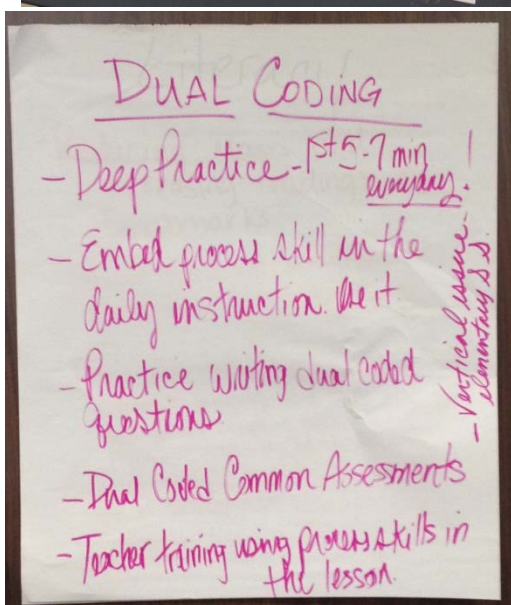 DUAL CODING
- Deep Practice - 1st 5-7 min
everyday!
- Embed process skill in the
daily instruction. Use it
- Practice writing dual coded
questions
- Dual Coded Common Assessments
- Teacher training using process skills in
the lesson.
- Vertical issue -
elementary S.S.